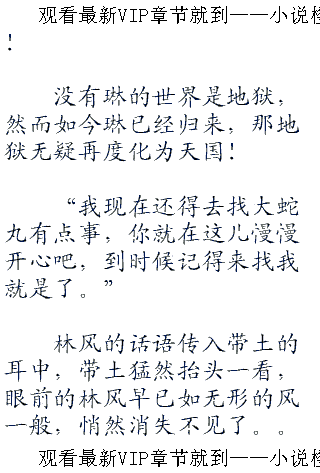 观看最新VIP章节就到——小说
！
没有琳的世界是地狱，
然而如今琳已经归来，那地
狱无疑再度化为天国！
“我现在还得去找大蛇
丸有点事，你就在这儿慢慢
开心吧，到时候记得来找我
就是了。”
林风的话语传入带土的
耳中，带土猛然抬头一看，
眼前的林风早已如无形的风
一般，悄然消失不见了。。
观看最新VIP章节就到——小说